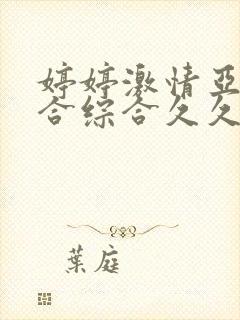 婷婷激情亞
合综合久久
葉庭